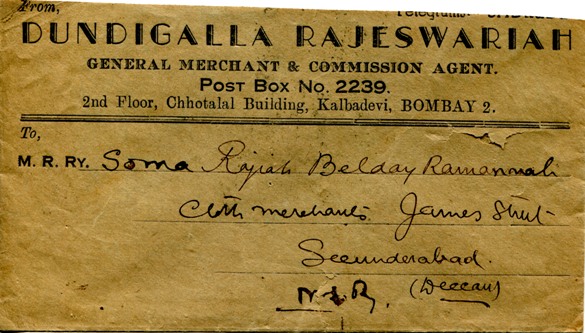 From,
Telegrams-
DUNDIGALLA RAJESWARIAH
GENERAL MERCHANT & COMMISSION AGENT.
POST BOX NO. 2239.
2nd Floor, Chhotalal Building, Kalbadevi, BOMBAY 2.
To,
M. R. RY. Soma Rajiah Belday Ramannah
Cloth merchants James Street
Secunderabad.
(Deccan)
N. S. Ry.